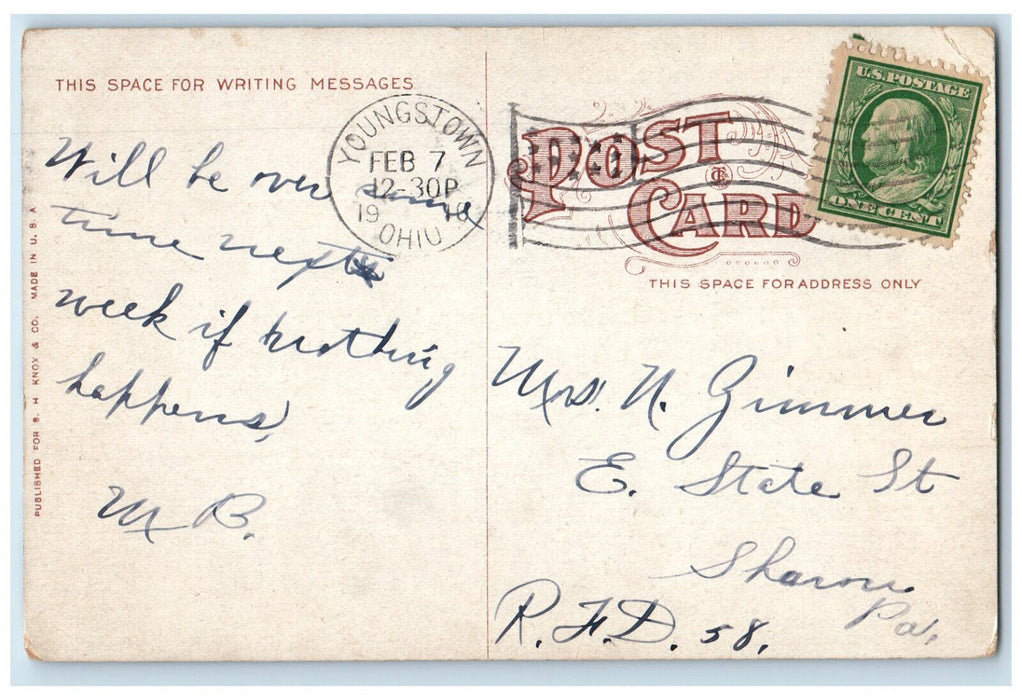 THIS SPACE FOR WRITING MESSAGES
Will be over some
time next
week if nothing
happens,
M B.
PUBLISHED FOR S. H KNOX & CO. MADE IN U. S. A
YOUNGSTOWN
FEB 7
12-30P
1910
OHIO
POST
CARD
THIS SPACE FOR ADDRESS ONLY
U.S. POSTAGE
ONE CENT
Mrs. N. Zimmer
E. State St
Sharon
Pa.
R.F.D. 58.